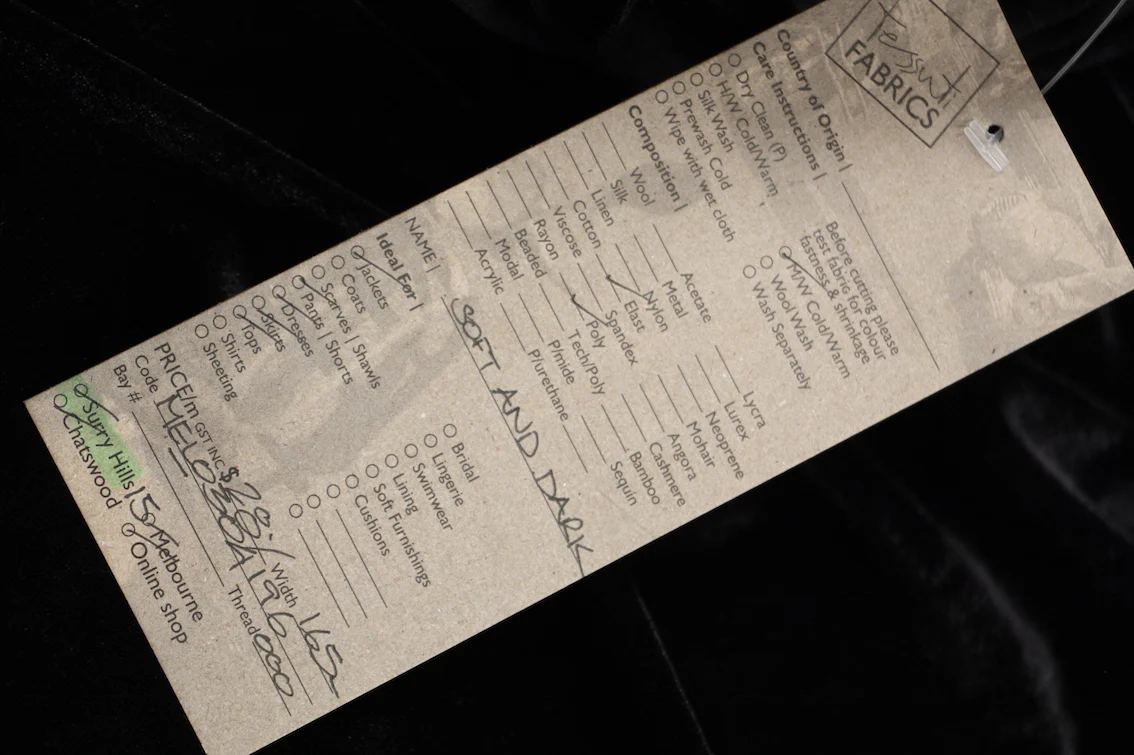 tessuti
FABRICS
Country of Origin |
Care Instructions |
Dry Clean (P)
H/W Cold/Warm
Silk Wash
Prewash Cold
Wipe with wet cloth
Before cutting please
test fabric for colour
fastness & shrinkage
M/W Cold/Warm
Wool Wash
Wash Separately
Composition |
Wool
Silk
Linen
Cotton
Viscose
Rayon
Beaded
Modal
Acrylic
Acetate
Metal
Nylon
Elast
Spandex
Poly
Tech/Poly
P/mide
P/urethane
Lycra
Lurex
Neoprene
Mohair
Angora
Cashmere
Bamboo
Sequin
NAME | SOFT AND DARK
Ideal For |
Jackets
Coats
Scarves | Shawls
Pants | Shorts
Dresses
Skirts
Tops
Shirts
Sheeting
Bridal
Lingerie
Swimwear
Lining
Soft Furnishings
Cushions
PRICE/m GST INC $ Width 165
Code Thread 000
Bay #
Surry Hills Melbourne
Chatswood Online shop